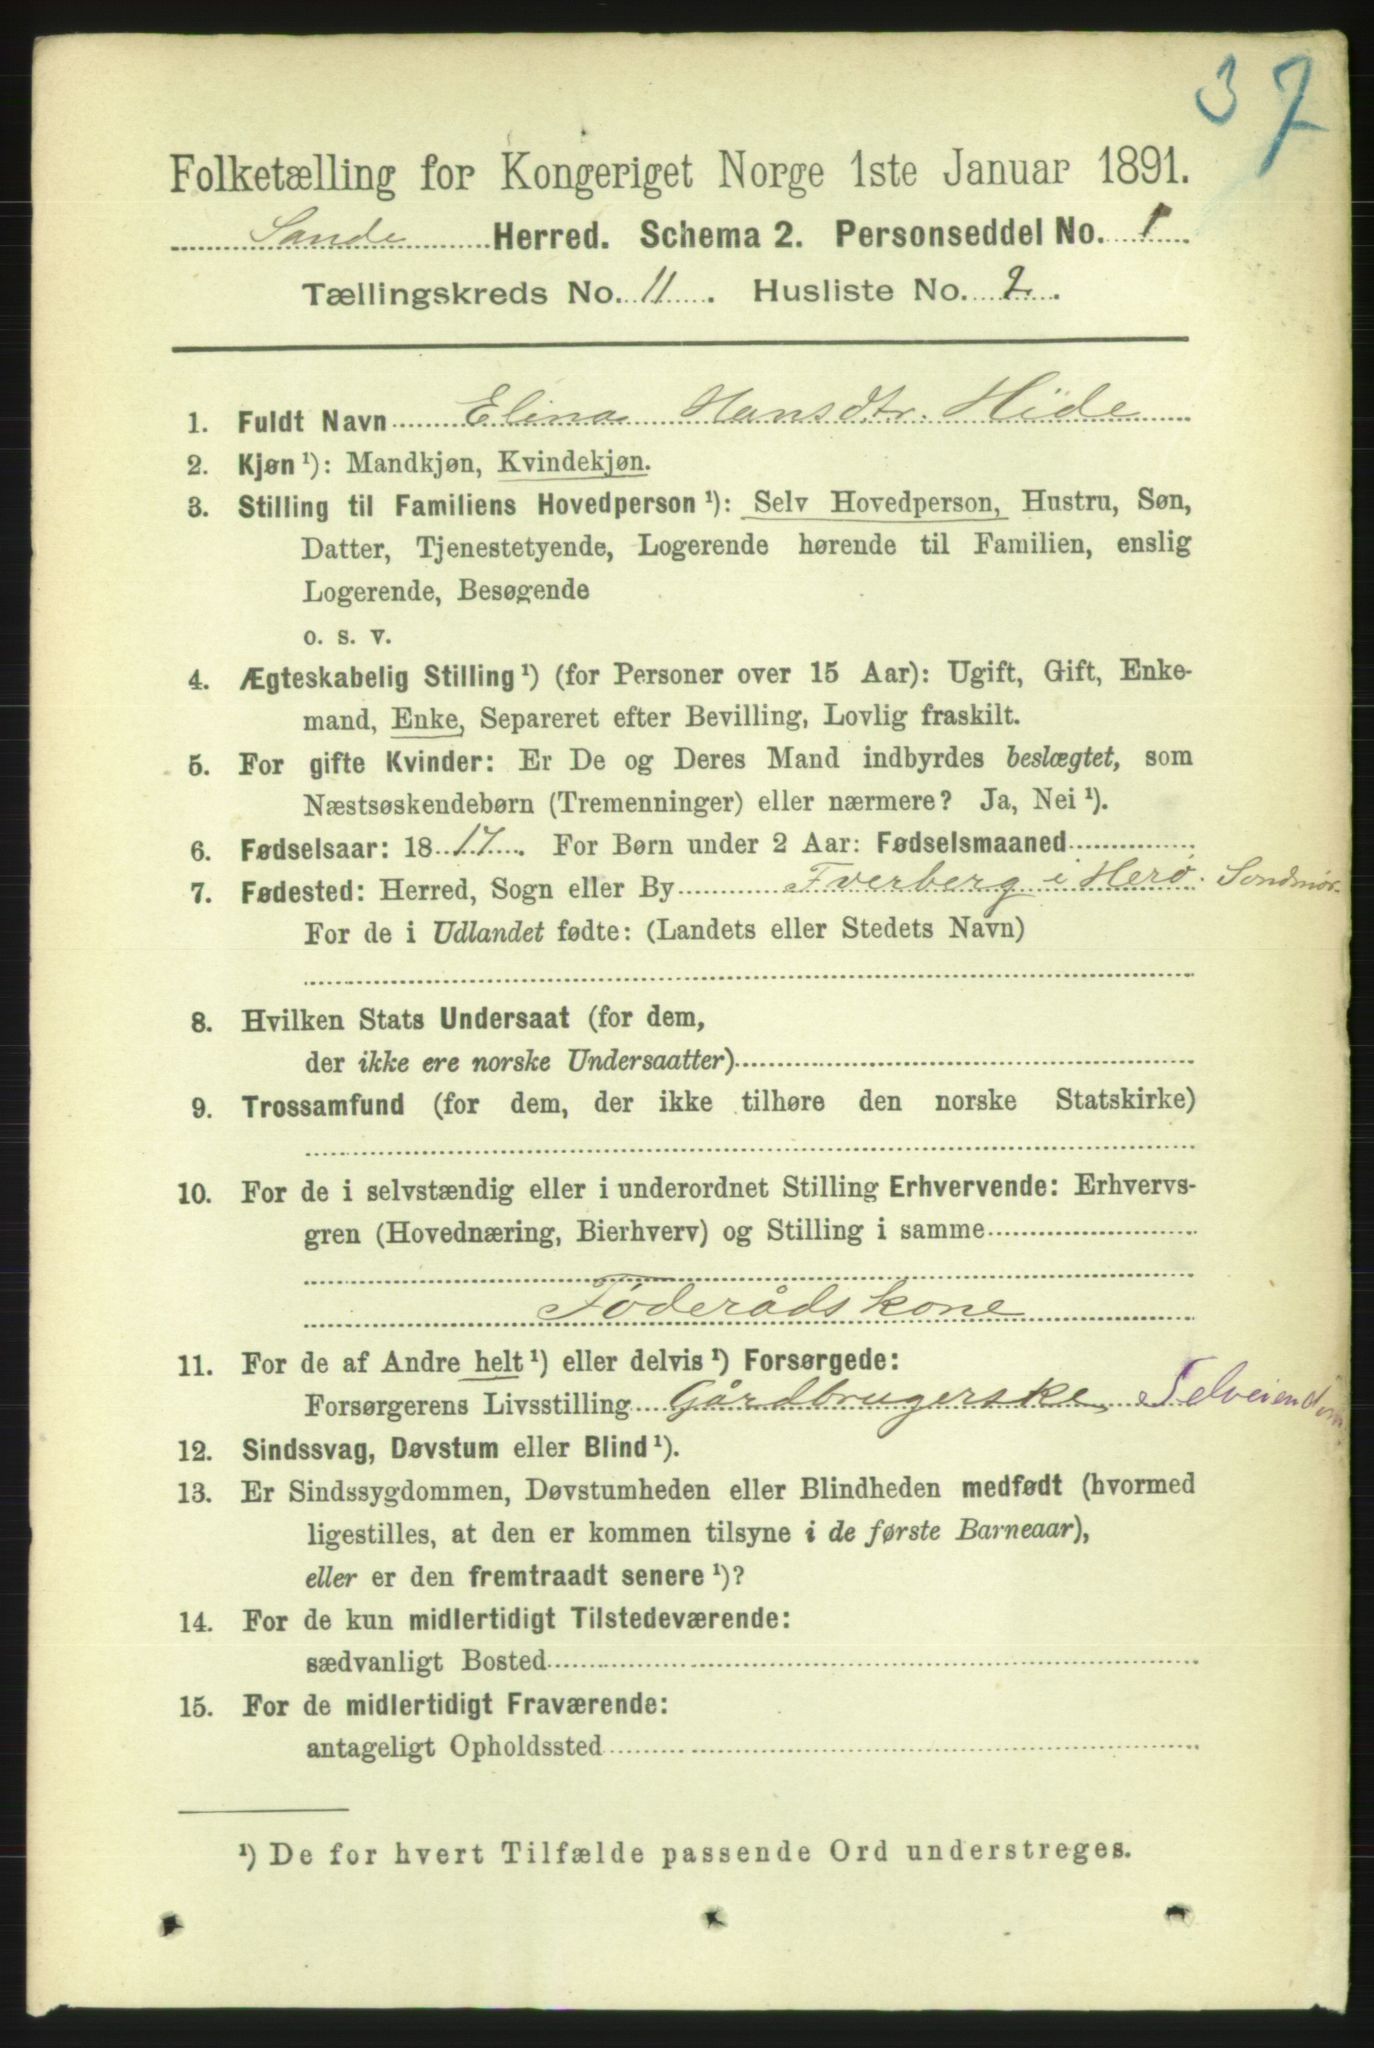 37
Folketælling for Kongeriget Norge 1ste Januar 1891.
Sande Herred. Schema 2. Personseddel No. 1
Tællingskreds No. 11. Husliste No. 2.
1. Fuldt Navn Elina Hansdtr. Hide
2. Kjøn ¹): Mandkjøn, Kvindekjøn.
3. Stilling til Familiens Hovedperson ¹): Selv Hovedperson, Hustru, Søn,
Datter, Tjenestetyende, Logerende hørende til Familien, enslig
Logerende, Besøgende
o. s. v.
4. Ægteskabelig Stilling ¹) (for Personer over 15 Aar): Ugift, Gift, Enke-
mand, Enke, Separeret efter Bevilling, Lovlig fraskilt.
5. For gifte Kvinder: Er De og Deres Mand indbyrdes beslægtet, som
Næstsøskendebørn (Tremenninger) eller nærmere? Ja, Nei ¹).
6. Fødselsaar: 1817. For Børn under 2 Aar: Fødselsmaaned
7. Fødested: Herred, Sogn eller By Tverberg i Herø. Søndmør.
For de i Udlandet fødte: (Landets eller Stedets Navn)
8. Hvilken Stats Undersaat (for dem,
der ikke ere norske Undersaatter)
9. Trossamfund (for dem, der ikke tilhøre den norske Statskirke)
10. For de i selvstændig eller i underordnet Stilling Erhvervende: Erhvervs-
gren (Hovednæring, Bierhverv) og Stilling i samme
Føderådskone
11. For de af Andre helt ¹) eller delvis ¹) Forsørgede:
Forsørgerens Livsstilling Gårdbrugerske, Selveiend
12. Sindssvag, Døvstum eller Blind ¹).
13. Er Sindssygdommen, Døvstumheden eller Blindheden medfødt (hvormed
ligestilles, at den er kommen tilsyne i de første Barneaar),
eller er den fremtraadt senere ¹)?
14. For de kun midlertidigt Tilstedeværende:
sædvanligt Bosted
15. For de midlertidigt Fraværende:
antageligt Opholdssted
¹) De for hvert Tilfælde passende Ord understreges.